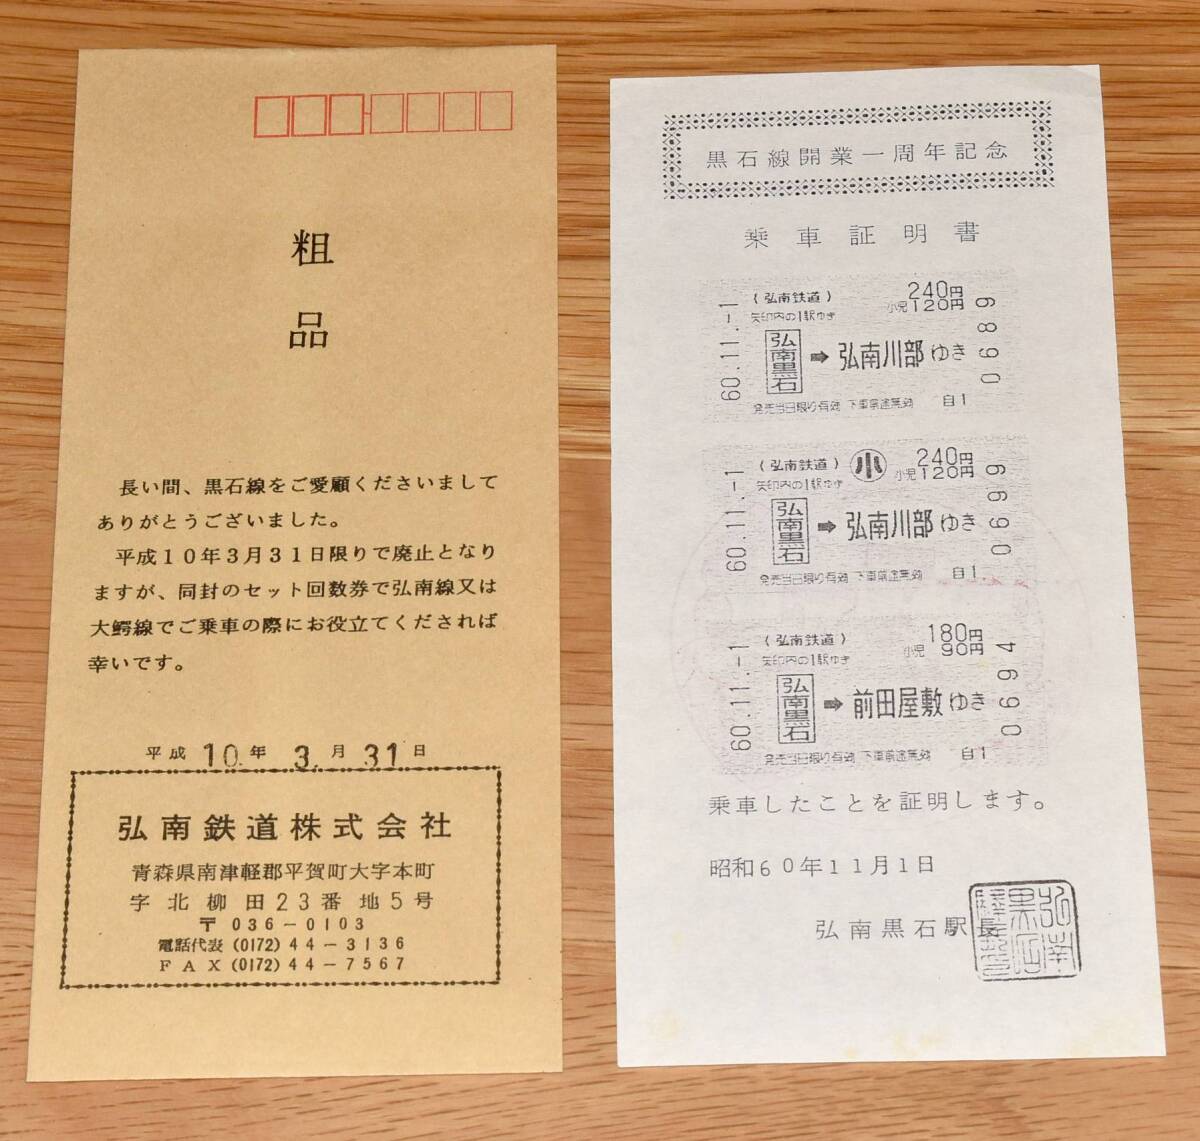 粗品
長い間、黒石線をご愛顧くださいまして
ありがとうございました。
平成10年3月31日限りで廃止となり
ますが、同封のセット回数券で弘南線又は
大鰐線でご乗車の際にお役立てくだされば
幸いです。
平成 10.年 3.月 31日
弘南鉄道株式会社
青森県南津軽郡平賀町大字本町
字北柳田23番地5号
〒 036-0103
電話代表 (0172) 44-3136
FAX (0172) 44-7567
黒石線開業一周年記念
乗車証明書
60.11.-1
(弘南鉄道)
240円
矢印内の1駅ゆき
小児120円
弘南黒石 ➡ 弘南川部 ゆき
発売当日限り有効 下車前途無効 自1
0689
60.11.-1
(弘南鉄道) 小
240円
矢印内の1駅ゆき
小児120円
弘南黒石 ➡ 弘南川部 ゆき
発売当日限り有効 下車前途無効 自1
0699
60.11.-1
(弘南鉄道)
180円
矢印内の1駅ゆき
小児 90円
弘南黒石 ➡ 前田屋敷 ゆき
発売当日限り有効 下車前途無効 自1
0694
乗車したことを証明します。
昭和60年11月1日
弘南黒石駅長